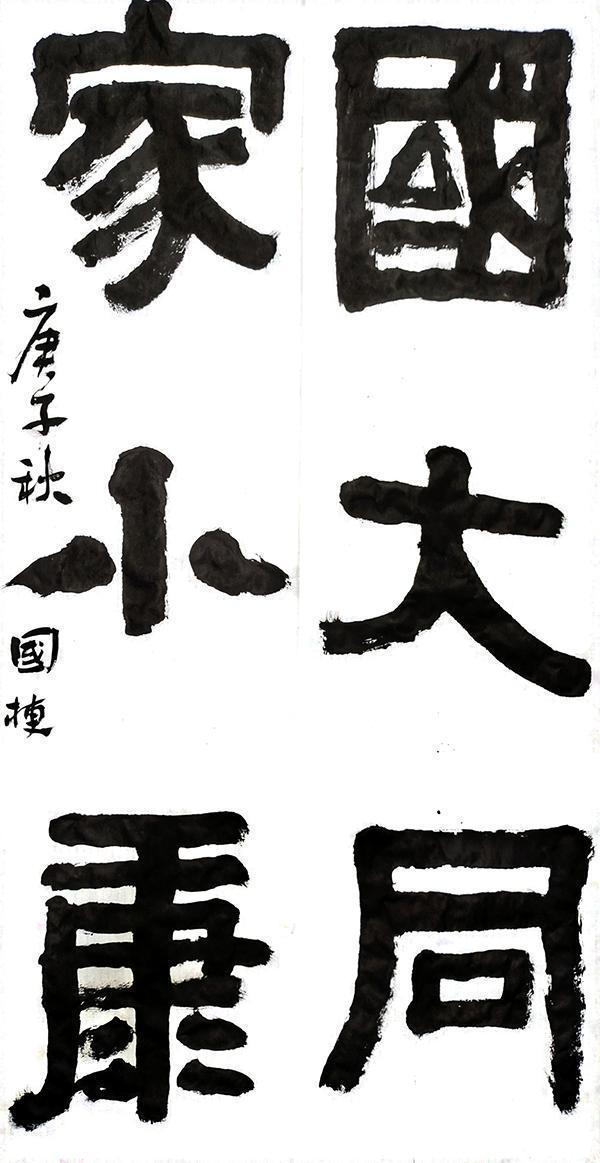 國大同
家小康
庚子秋 國棟